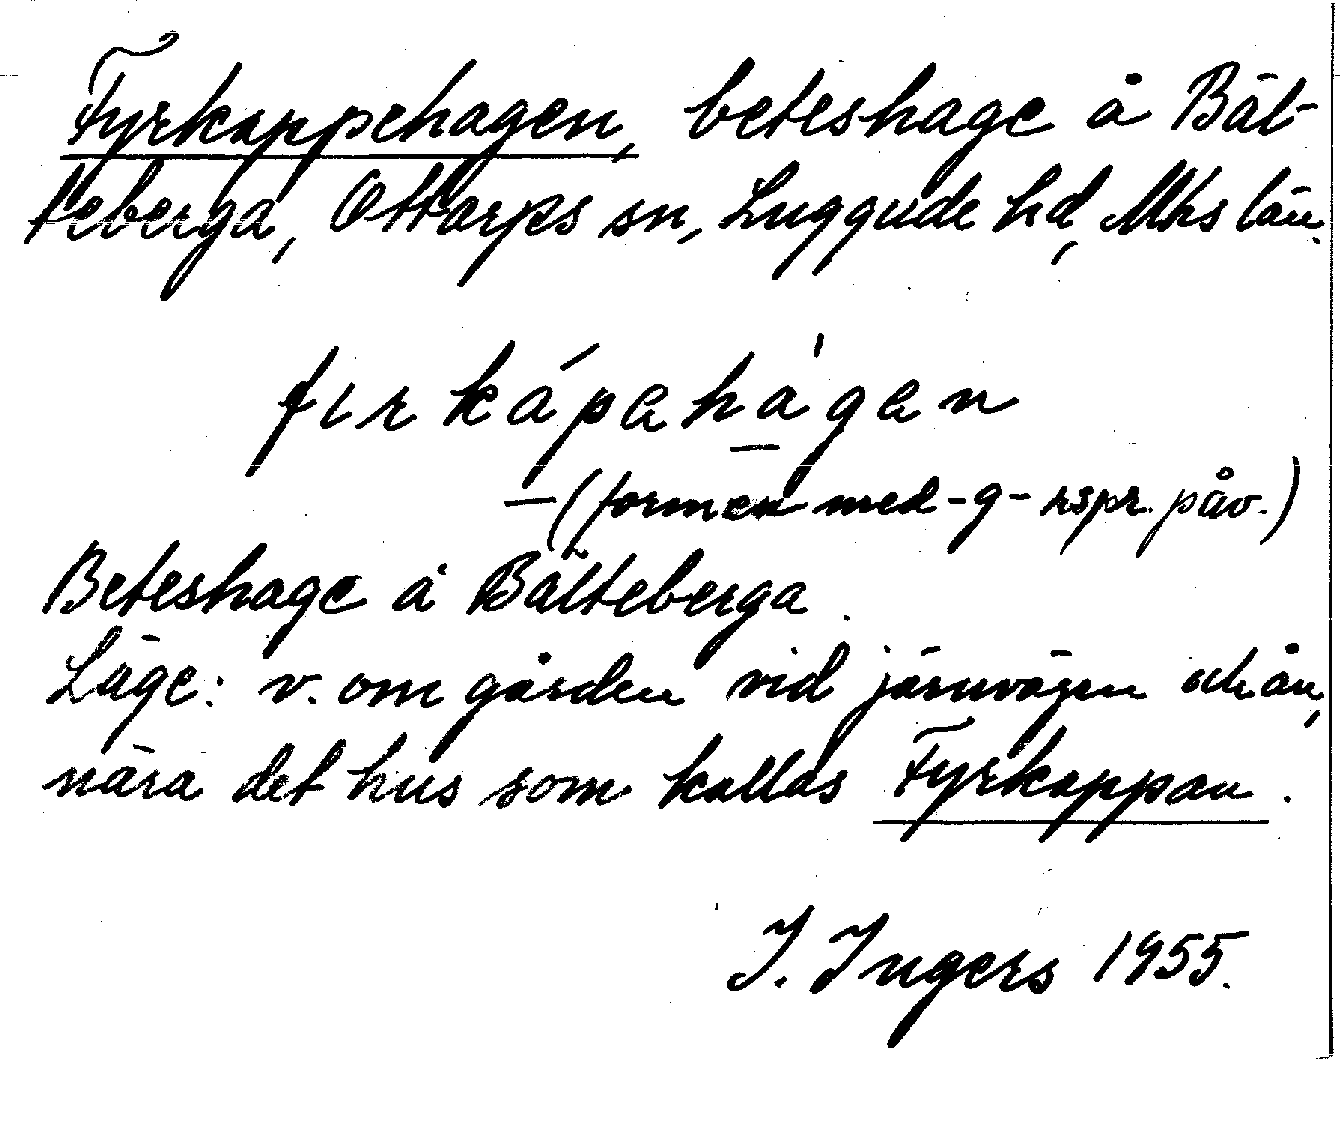 Fyrkappehagen, beteshage å Bäl-
teberga, Ottarps sn, Luggude hd, Mhs län.
fɪrkápahàgan
— (formen med -g- rspr. påv.)
Beteshage å Bälteberga.
Läge: v. om gården vid järnvägen och ån,
nära det hus som kallas Fyrkappan.
I. Ingers 1955.